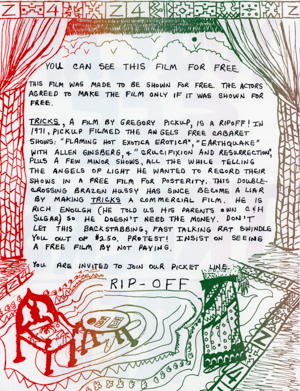 YOU CAN SEE THIS FILM FOR FREE
THIS FILM WAS MADE TO BE SHOWN FOR FREE. THE ACTORS
AGREED TO MAKE THE FILM ONLY IF IT WAS SHOWN FOR
FREE.
TRICKS, A FILM BY GREGORY PICKUP, IS A RIPOFF! IN
1971, PICKUP FILMED THE ANGELS FREE CABARET
SHOWS: "FLAMING HOT EXOTICA EROTICA", "EARTHQUAKE"
WITH ALLEN GINSBERG, & "CRUCIFIXION AND RESURRECTION",
PLUS A FEW MINOR SHOWS, ALL THE WHILE TELLING
THE ANGELS OF LIGHT HE WANTED TO RECORD THEIR
SHOWS IN A FREE FILM FOR POSTERITY. THIS DOUBLE-
CROSSING BRAZEN HUSSY HAS SINCE BECOME A LIAR
BY MAKING TRICKS A COMMERCIAL FILM. HE IS
RICH ENOUGH (HE TOLD US HIS PARENTS OWN C&H
SUGAR) SO HE DOESN'T NEED THE MONEY. DON'T
LET THIS BACKSTABBING, FAST TALKING RAT SWINDLE
YOU OUT OF $2.50. PROTEST! INSIST ON SEEING
A FREE FILM BY NOT PAYING.
YOU ARE INVITED TO JOIN OUR PICKET LINE.
RIP-OFF